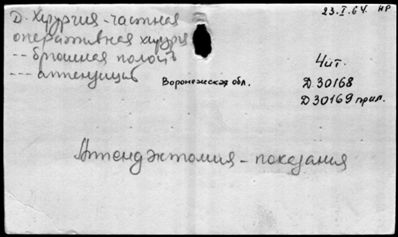 Д. Хирургия - частная
23.I.64. НР
оперативная хирургия
-- брюшная полость
Чит.
--- аппендицит
Воронежская обл.
Д 30168
Д 30169 прил.
Аппендэктомия - показания